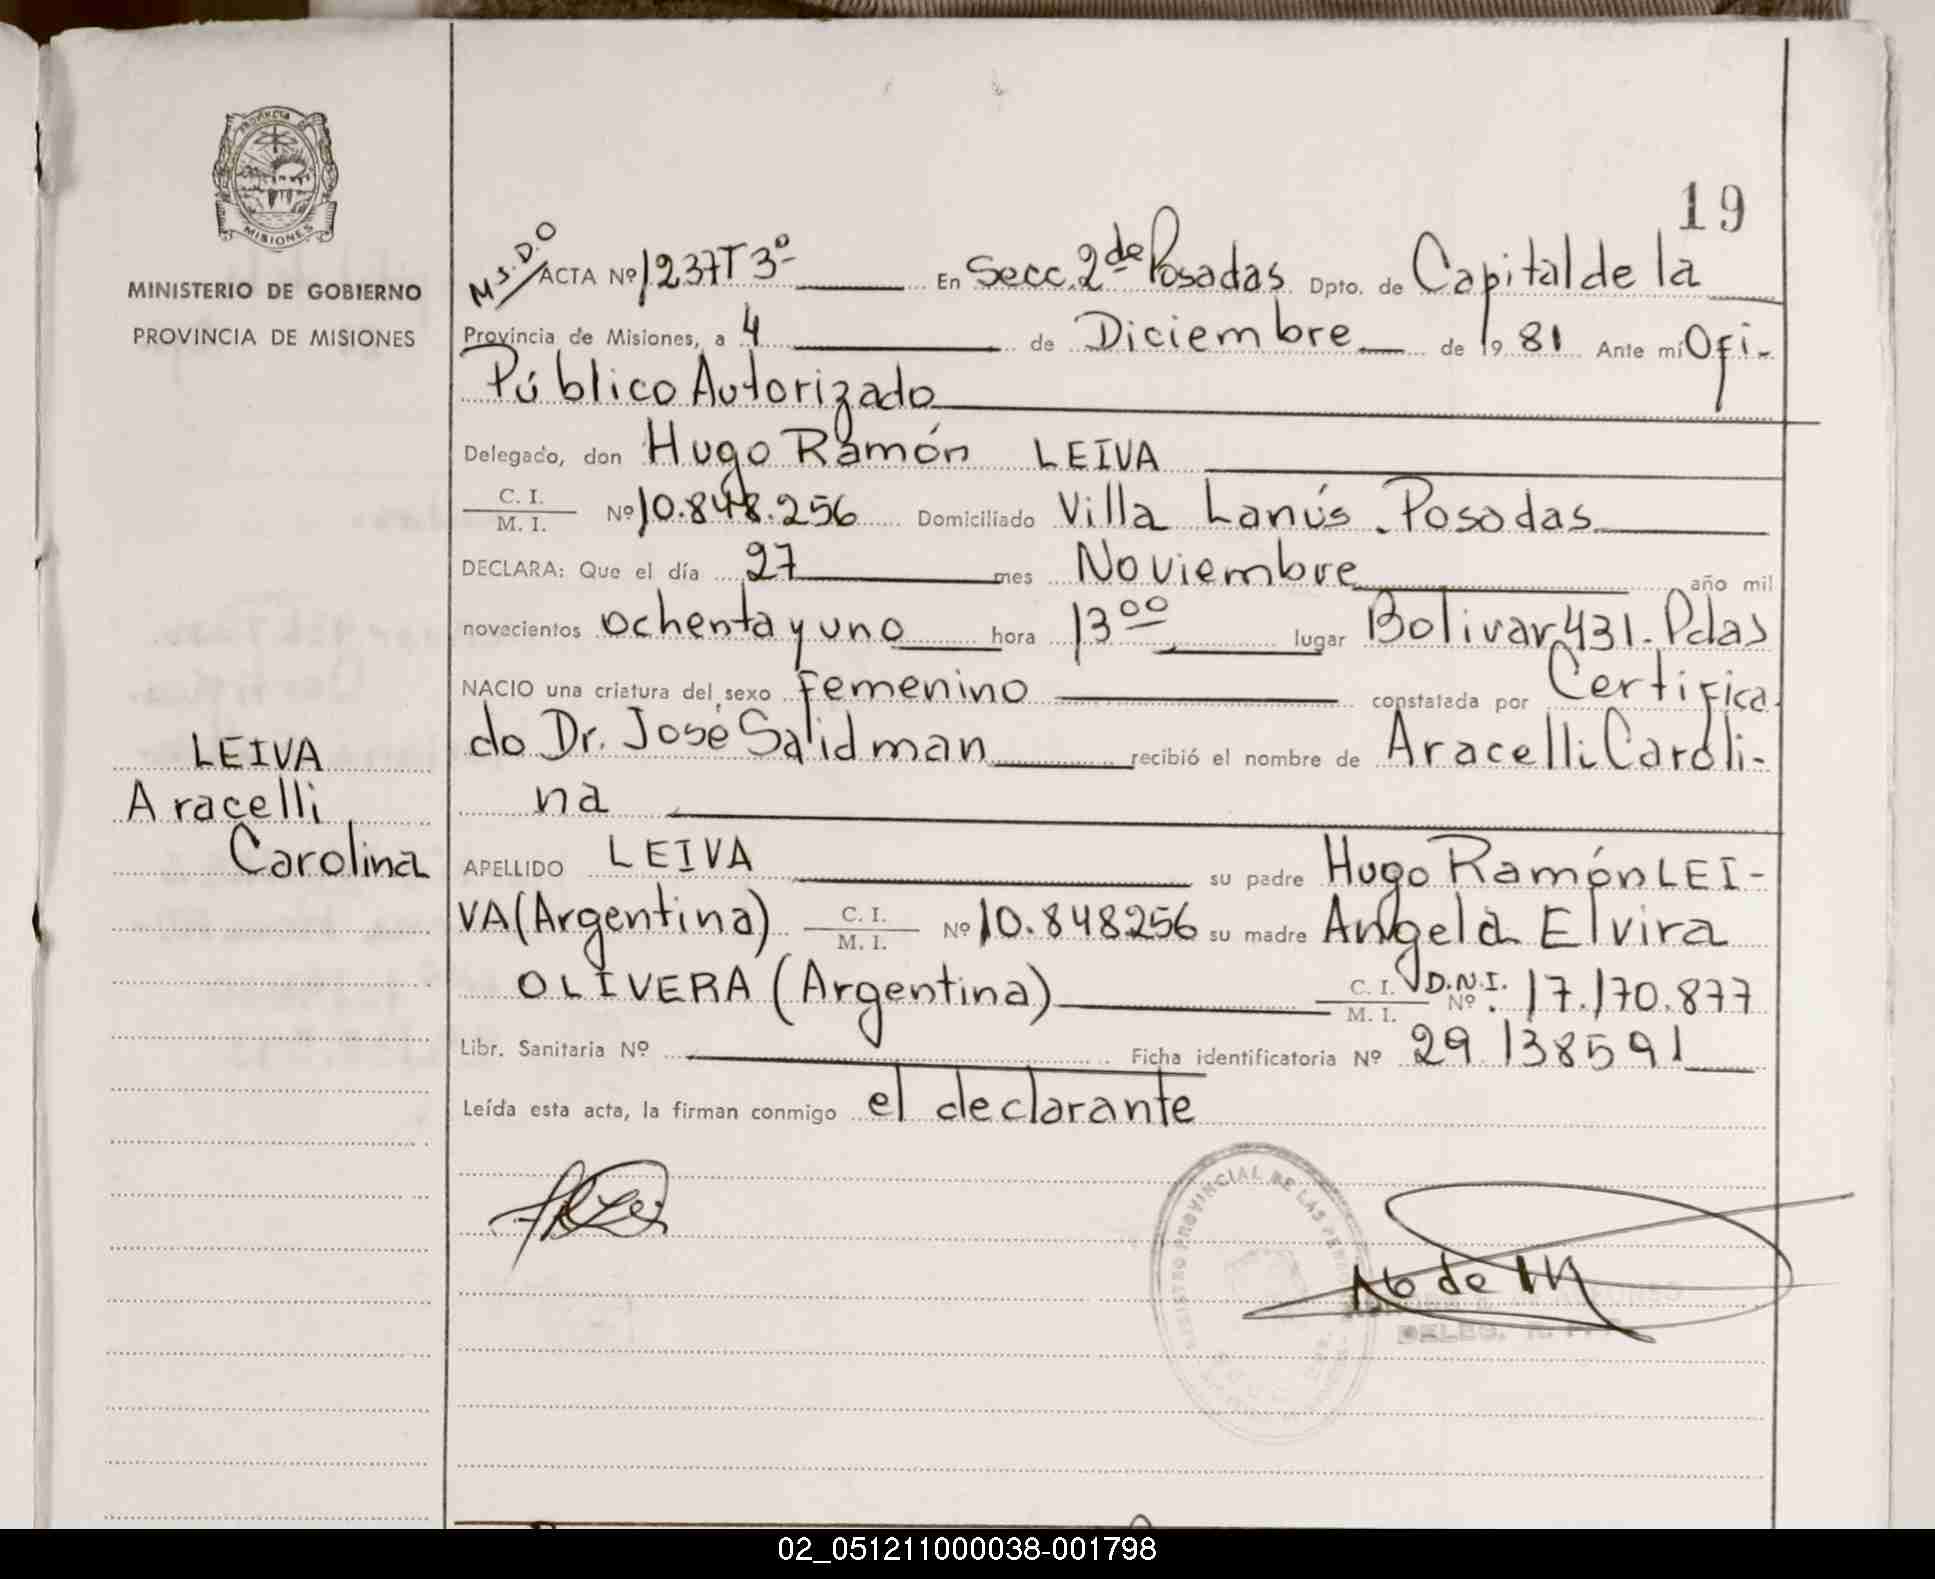 PROVINCIA DE
MISIONES
MINISTERIO DE GOBIERNO
PROVINCIA DE MISIONES
19
M.S./D.O
ACTA Nº 1237 T 3º En Secc. 2da de Posadas Dpto. de Capital de la
Provincia de Misiones, a 4 de Diciembre de 19 81 Ante mi Ofi-
Público Autorizado
Delegado, don Hugo Ramón LEIVA
C. I.
M. I. Nº 10.848.256 Domiciliado Villa Lanús - Posadas
DECLARA: Que el día 27 mes Noviembre año mil
novecientos ochenta y uno hora 13 00 lugar Bolivar 431 - Pdas
NACIO una criatura del sexo femenino constatada por Certifica-
do Dr. José Saidman recibió el nombre de Aracelli Caroli-
na
LEIVA
Aracelli
Carolina
APELLIDO LEIVA su padre Hugo Ramón LEI-
VA (Argentina) C. I. M. I. Nº 10.848256 su madre Angela Elvira
OLIVERA (Argentina) C. I. M. I. D.N.I. Nº 17.170.877
Libr. Sanitaria Nº Ficha identificatoria Nº 29 138591
Leída esta acta, la firman conmigo el declarante
REGISTRO PROVINCIAL DE LAS PERSONAS
DELEG.
02_051211000038-001798